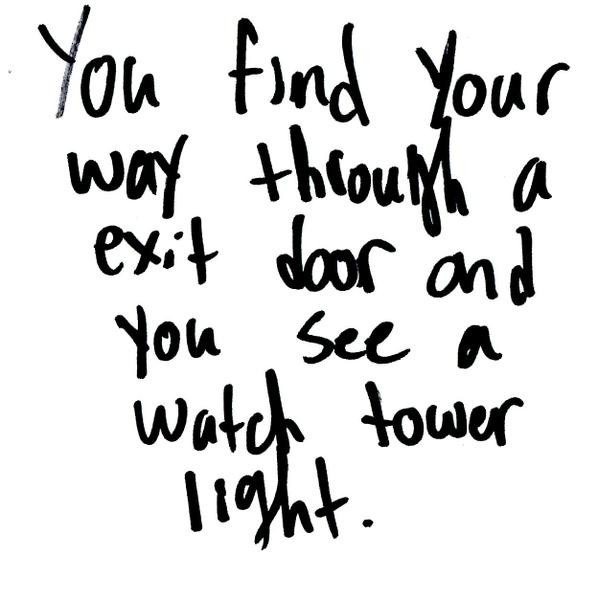 You find your
way through a
exit door and
you see a
watch tower
light.